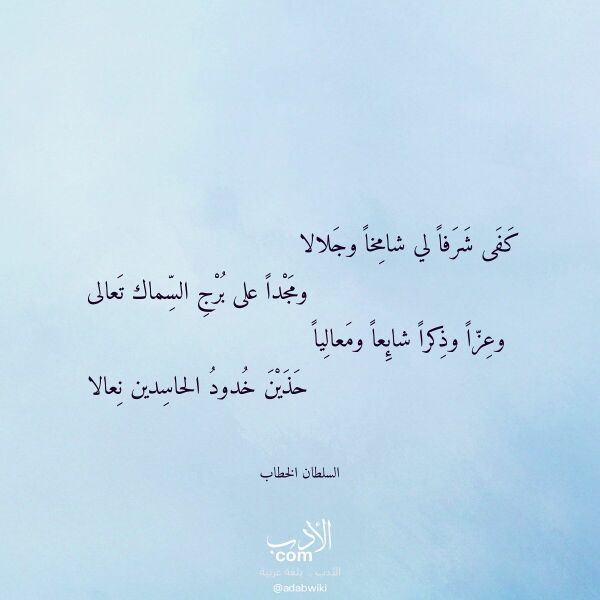 كَفَى شَرَفاً لي شامِخاً وجَلالا
ومَجْداً على بُرْجِ السِّماك تَعالى
وعِزّاً وذِكراً شايِعاً ومَعالِياً
حَذَيْنَ خُدودُ الحاسِدين نِعالا
السلطان الخطاب
الأدب
com
الأدب .. بلغة عربية
@adabwiki